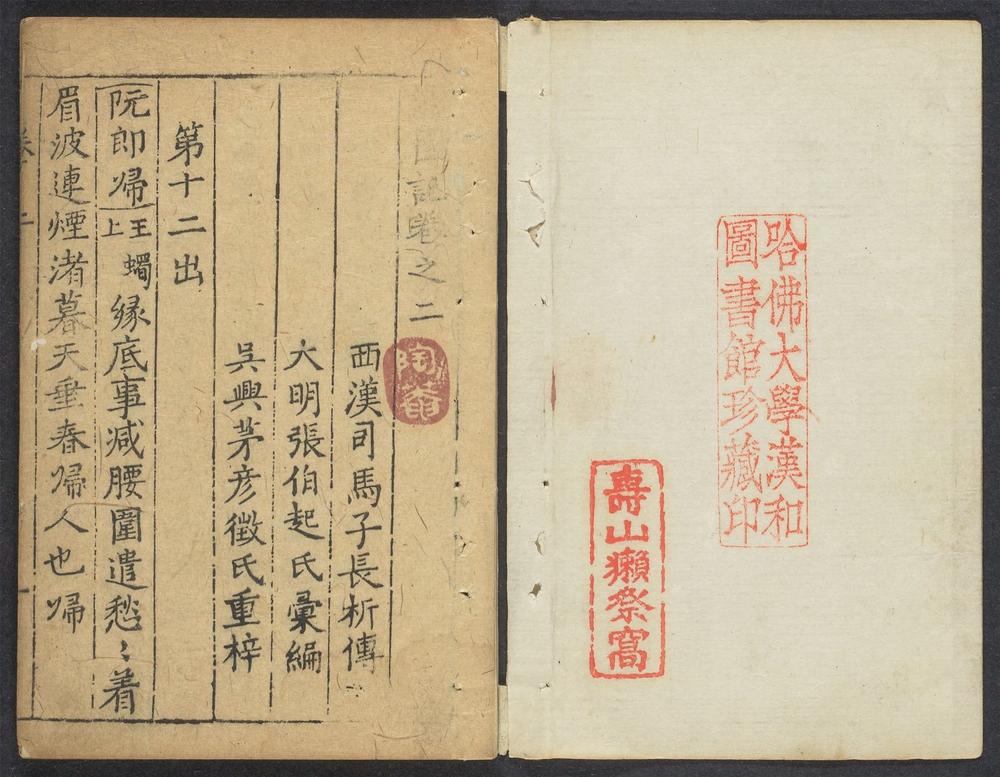 哈佛大學漢和
圖書館珍藏印
壽山獺祭窩
記卷之二
陶菴
西漢司馬子長析傳
大明張伯起氏彙編
吳興茅彥徵氏重梓
第十二出
阮郎帰王蠋上緣底事减腰圍遣愁〻着
眉波連煙渚暮天垂春帰人也帰